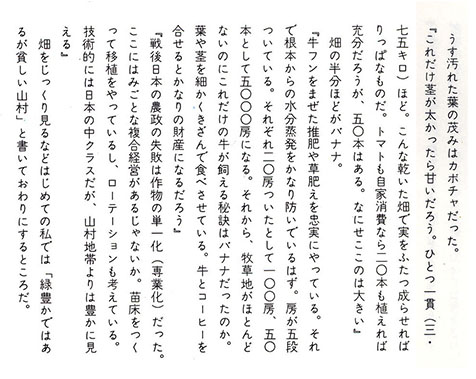 うす汚れた葉の茂みはカボチャだった。
『これだけ茎が太かったら甘いだろう。ひとつ一貫（三・
七五キロ）ほど。こんな乾いた畑で実をふたつ成らせれば
りっぱなものだ。トマトも自家消費なら二〇本も植えれば
充分だろうが、五〇本はある。なにせここのは大きい』
畑の半分ほどがバナナ。
『牛フンをまぜた推肥や草肥えを忠実にやっている。それ
で根本からの水分蒸発をかなり防いでいるはず。房が五段
ついている。それぞれ二〇房ついたとして一〇〇房、五〇
本として五〇〇〇房になる。それから、牧草地がほとんど
ないのにこれだけの牛が飼える秘訣はバナナだったのか。
葉や茎を細かくきざんで食べさせている。牛とコーヒーを
合せるとかなりの財産になるだろう』
『戦後日本の農政の失敗は作物の単一化（専業化）だった。
ここにはみごとな複合経営があるじゃないか。苗床をつく
って移植をやっているし、ローテーションも考えている。
技術的には日本の中クラスだが、山村地帯よりは豊かに見
える』
畑をじっくり見るなどはじめての私では「緑豊かではあ
るが貧しい山村」と書いておわりにするところだ。